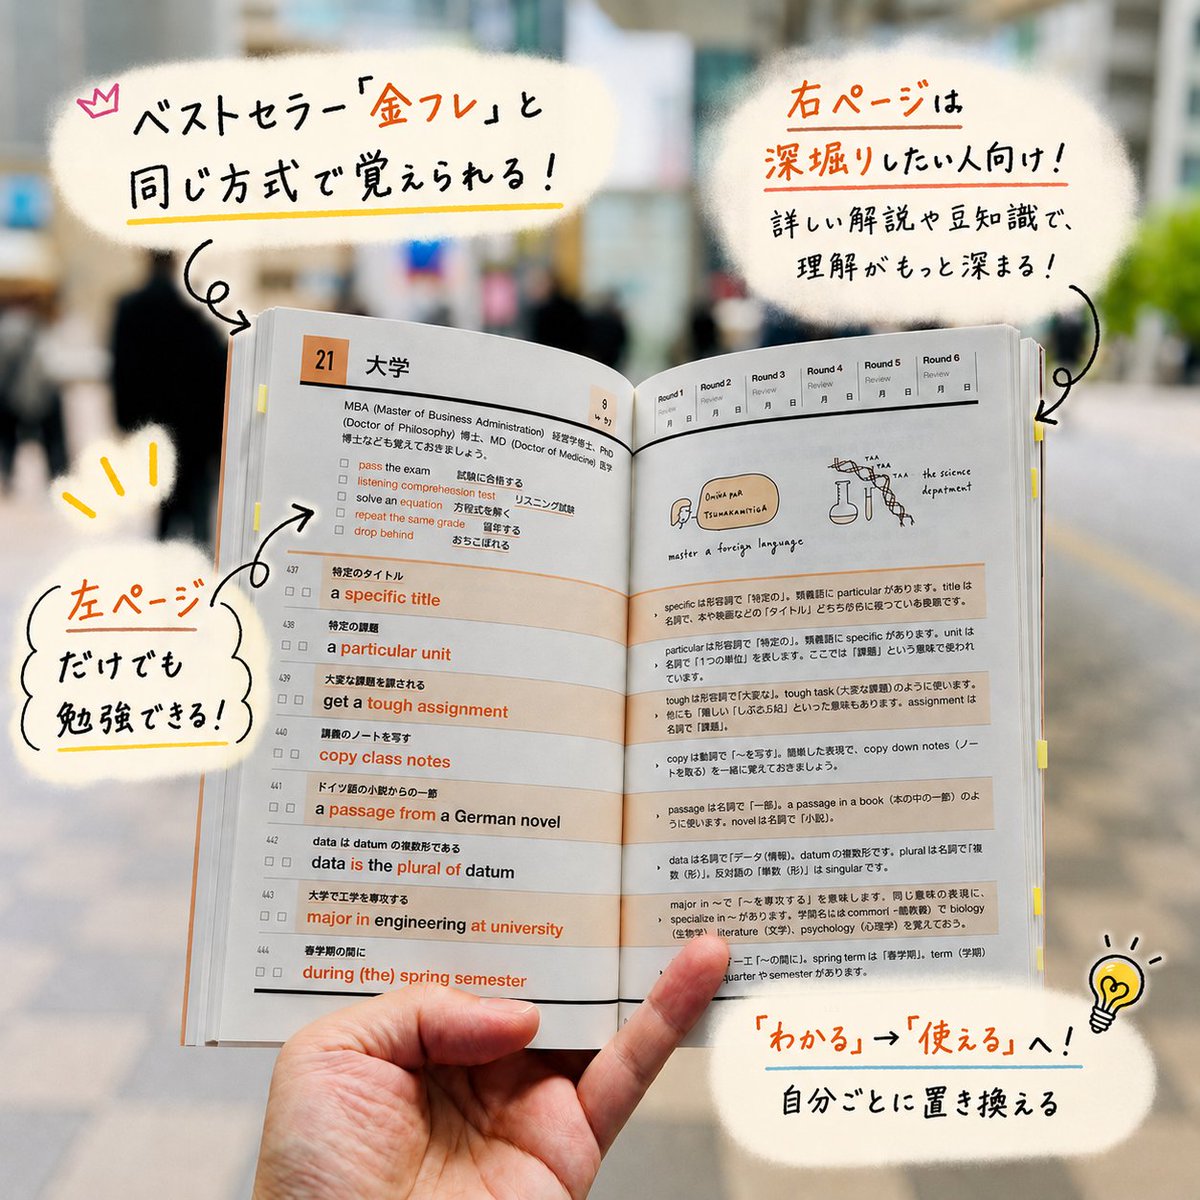 ベストセラー「金フレ」と
同じ方式で覚えられる!
右ページは
深堀りしたい人向け!
詳しい解説や豆知識で、
理解がもっと深まる!
左ページ
だけでも
勉強できる!
21 大学
MBA (Master of Business Administration) 経営学修士、PhD
(Doctor of Philosophy) 博士、MD (Doctor of Medicine) 医学
博士なども覚えておきましょう。
pass the exam 試験に合格する
listening comprehension test リスニング試験
solve an equation 方程式を解く
repeat the same grade 留年する
drop behind おちこぼれる
437 特定のタイトル
a specific title
438 特定の課題
a particular unit
439 大変な課題を課される
get a tough assignment
440 講義のノートを写す
copy class notes
441 ドイツ語の小説からの一節
a passage from a German novel
442 data は datum の複数形である
data is the plural of datum
443 大学で工学を専攻する
major in engineering at university
444 春学期の間に
during (the) spring semester
Round 1 Round 2 Round 3 Round 4 Round 5 Round 6
Review Review Review Review Review Review
月 日 月 日 月 日 月 日 月 日 月 日
TAA
TAA
TAA
the science
depatment
master a foreign language
specific は形容詞で「特定の」。類義語に particular があります。title は
名詞で、本や映画などの「タイトル」
particular は形容詞で「特定の」。類義語に specific があります。unit は
名詞で「1つの単位」を表します。ここでは「課題」という意味で使われ
ています。
tough は形容詞で「大変な」。tough task (大変な課題) のように使います。
他にも「難しい」といった意味もあります。assignment は
名詞で「課題」。
copy は動詞で「〜を写す」。簡単した表現で、copy down notes (ノー
トを取る) を一緒に覚えておきましょう。
passage は名詞で「一部」。a passage in a book (本の中の一節) のよ
うに使います。novel は名詞で「小説」。
data は名詞で「データ (情報)」。datum の複数形です。plural は名詞で「複
数 (形)」。反対語の「単数 (形)」は singular です。
major in 〜で「〜を専攻する」を意味します。同じ意味の表現に、
specialize in 〜があります。で biology
(生物学)、literature (文学)、psychology (心理学) を覚えておう。
「〜の間に」。spring term は「春学期」。term (学期)
quarter や semester があります。
「わかる」→「使える」へ!
自分ごとに置き換える